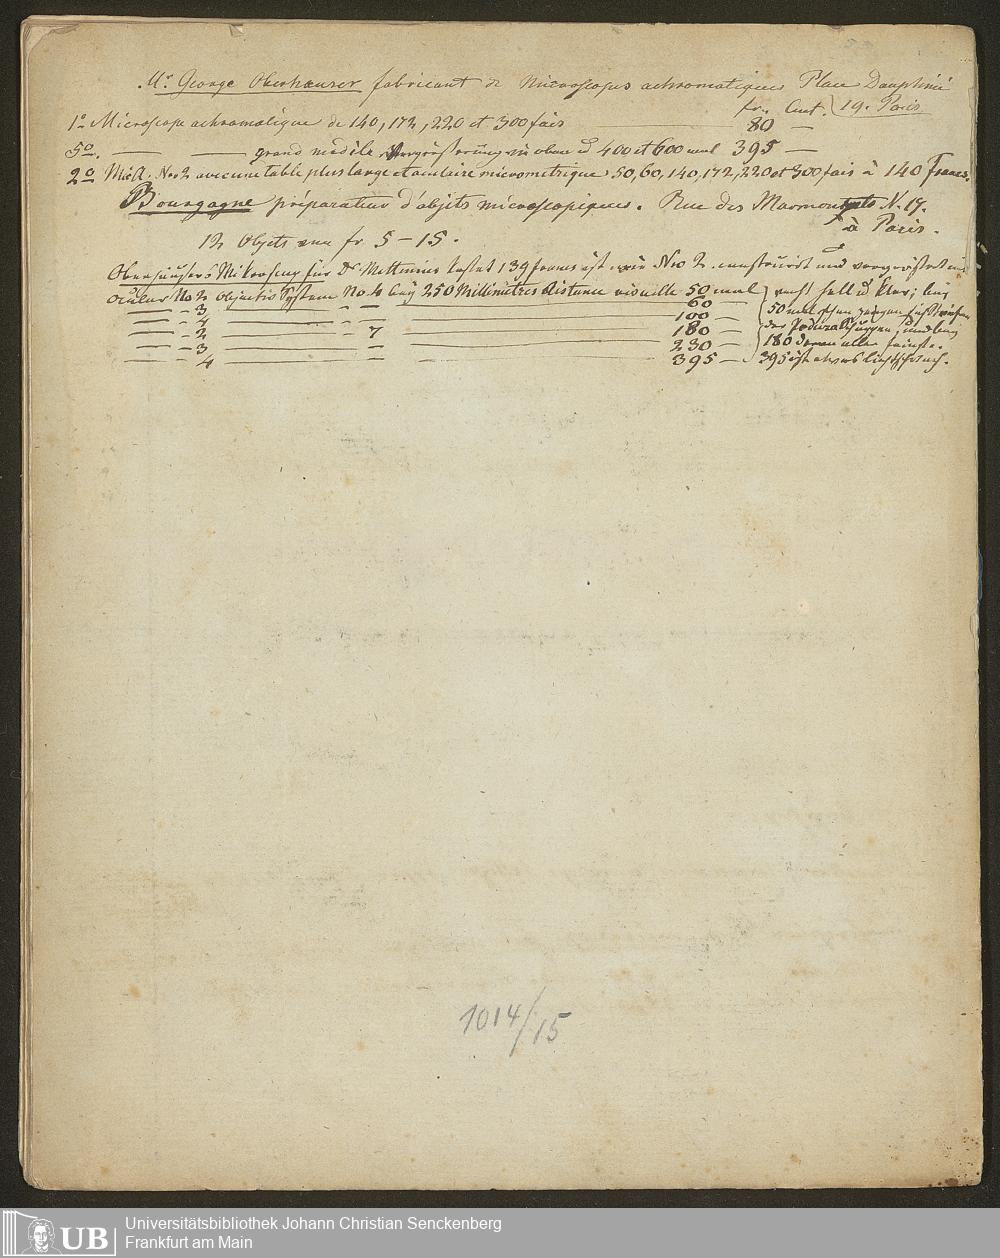 Mr George Oberhæuser fabricant de Microscopes achromatiques Place Dauphine
fr. Cent. 19. Paris
1o Microscope achromatique de 140, 172, 220 et 300 fois 80 —
5o. — — grand modèle, Vergrößerung wie oben u 400 et 600 mal 395 —
2o Mic. A. Nro 2 avec une table plus large et oculaire micrometrique 50, 60, 140, 172, 220 et 300 fois à 140 Francs.
Bourgogne préparateur d'objets microscopiques. Rue des Marmousets N. 17.
à Paris.
12 Objets von fr. 5 – 15.
Oberhäuser's Mikroscop für Dr Mettenius kostet 139 francs ist wie Nro 2. construirt und vergrößert mit
Ocular No 2 Objectiv System No. 4 bey 250 Millimètres distance visuelle 50 mal recht hell u klar; bey
— – 3 — – — — 60 — 50 mal schon
— – 4 — – — — 100 — der Podura Schuppen, und bey
— – 2 — 7 — 180 — 180 deren aller feinste.
— – 3 — – — — 230 — 395 ist etwas lichtschwach.
— – 4 — – — — 395 —
1014/15
UB Universitätsbibliothek Johann Christian Senckenberg
Frankfurt am Main